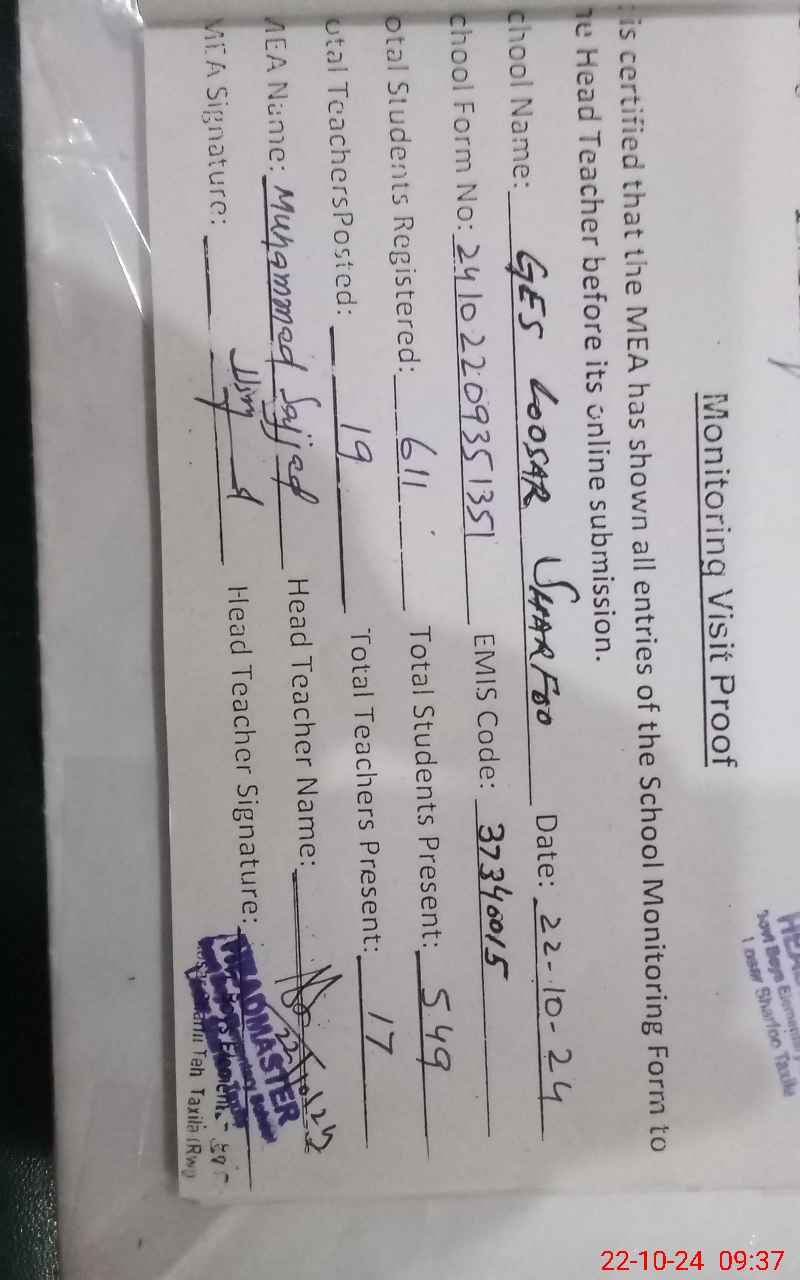 Monitoring Visit Proof
is certified that the MEA has shown all entries of the School Monitoring Form to
Head Teacher before its online submission.
chool Name: GES LOOSAR SHARFOO Date: 22-10-24
chool Form No: 24102209351351 EMIS Code: 37340015
otal Students Registered: 611 Total Students Present: 549
otal TeachersPosted: 19 Total Teachers Present: 17
MEA Name: Muhammad Sajjad Head Teacher Name:
MEA Signature: Head Teacher Signature:
22/10/24
HEADMASTER
Teh Taxila (Rwp
HEA
Govt Boys Elementary
Losar Sharfoo Taxila
22-10-24 09:37